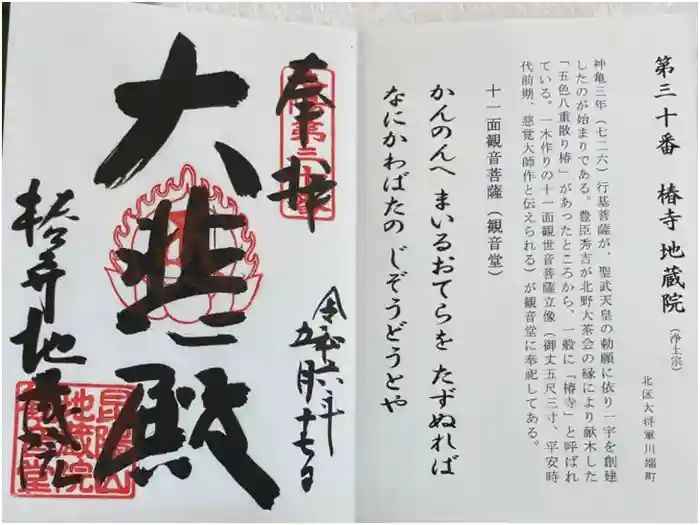 第三十番 椿寺地蔵院(浄土宗)
北区大将軍川端町
神亀三年(七二六)行基菩薩が、聖武天皇の勅願に依り一宇を創建
したのが始まりである。豊臣秀吉が北野大茶会の縁により献木した
「五色八重散り椿」があったところから、一般に「椿寺」と呼ばれ
ている。一木作りの十一面観世音菩薩立像(御丈五尺三寸、平安時
代前期、慈覚大師作と伝えられる)が観音堂に奉祀してある。
十一面観音菩薩(観音堂)
かんのんへ まいるおてらを たずぬれば
なにかわばたの じぞうどうとや
奉拝
令和六年
五月十七日
大悲殿
椿寺地蔵院
昆陽山
地蔵院
観音堂